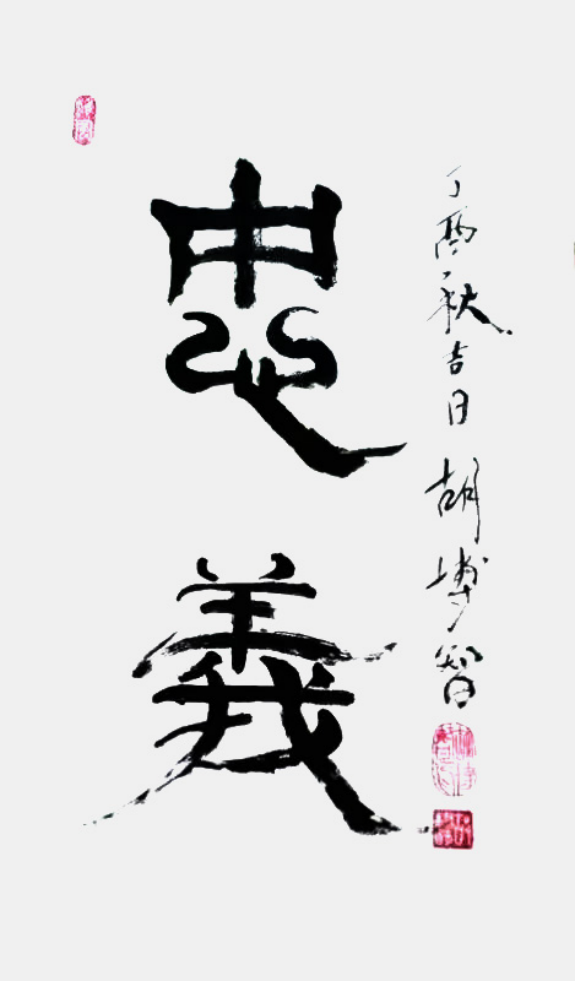 忠義
丁酉秋吉日 胡博智